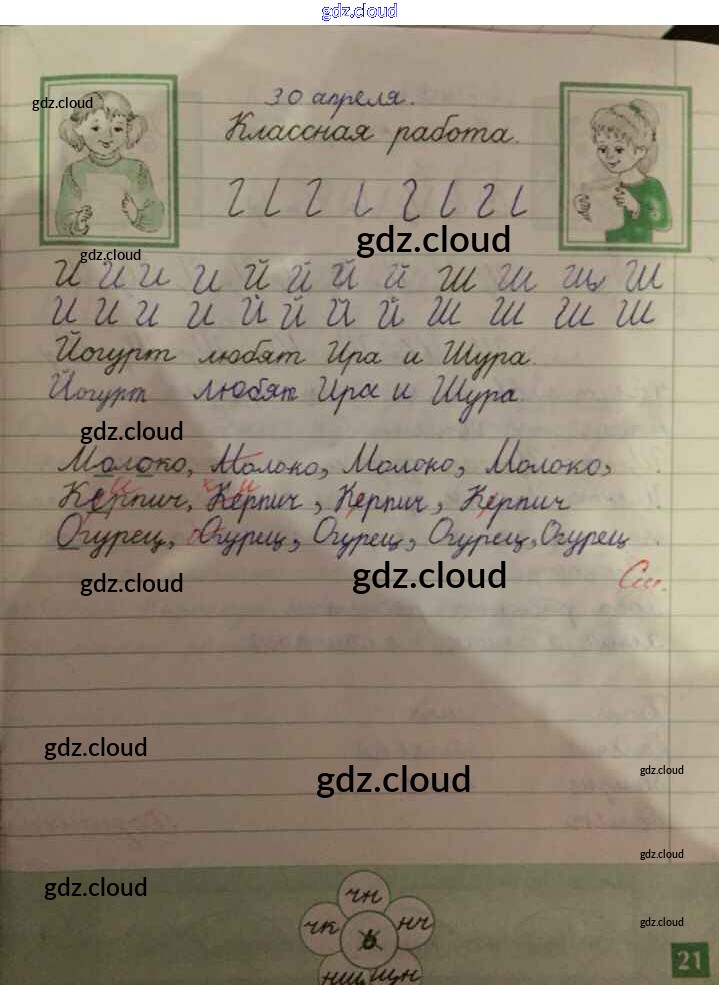 gdz.cloud
30 апреля.
gdz.cloud
Классная работа.
gdz.cloud
gdz.cloud
И И И И Й Й Й Й Ш Ш Ш Ш
И И И И Й Й Й Й Ш Ш Ш Ш
Йогурт любят Ира и Шура.
Йогурт любят Ира и Шура.
gdz.cloud
Молоко, Молоко, Молоко, Молоко,
и и
Керпич, Керпич, Керпич, Керпич
Огурец, Огурец, Огурец, Огурец, Огурец
См.
gdz.cloud
gdz.cloud
gdz.cloud
gdz.cloud
gdz.cloud
gdz.cloud
gdz.cloud
чн
чк
нч
ь
gdz.cloud
нщ
щн
21